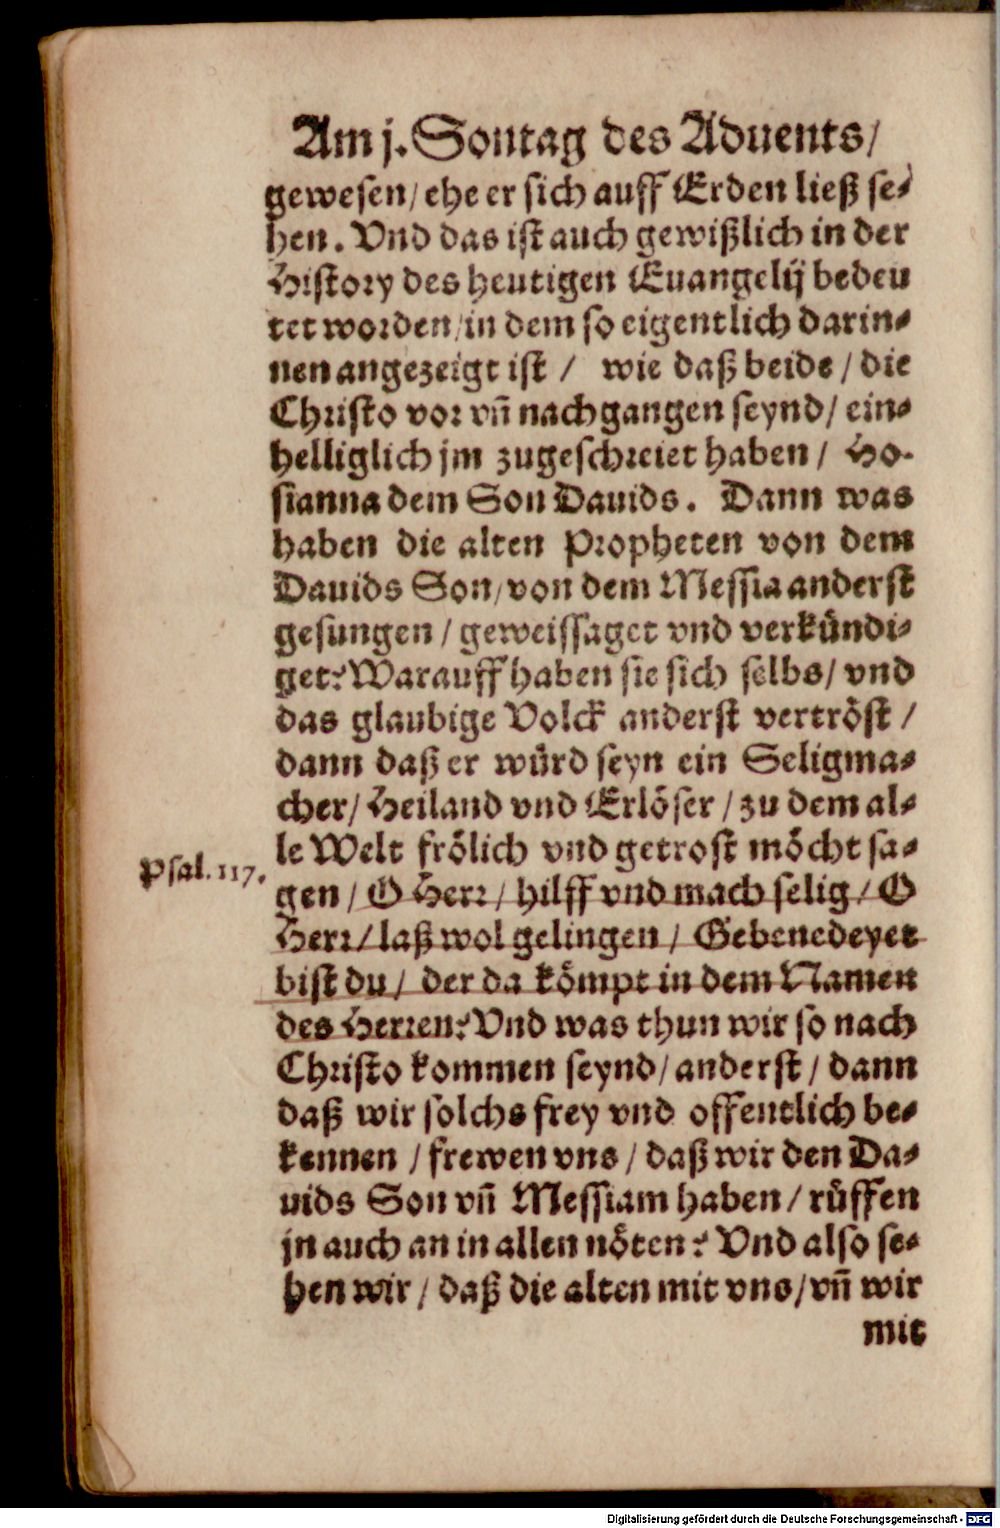 Am j. Sontag des Aduents/
gewesen/ ehe er sich auff Erden ließ se⸗
hen. Vnd das ist auch gewißlich in der
History des heutigen Euangelij bedeu
tet worden/ in dem so eigentlich darin⸗
nen angezeigt ist / wie daß beide / die
Christo vor vñ nachgangen seynd/ ein⸗
helliglich jm zugeschreiet haben / Ho-
sianna dem Son Dauids. Dann was
haben die alten Propheten von dem
Dauids Son/ von dem Messia anderst
gesungen / geweissaget vnd verkündi⸗
get? Warauff haben sie sich selbs/ vnd
das glaubige Volck anderst vertröst /
dann daß er würd seyn ein Seligma⸗
cher/ Heiland vnd Erlöser / zu dem al⸗
le Welt frölich vnd getrost möcht sa⸗
Psal. 117.
gen / O Herr / hilff vnd mach selig / O
Herr/ laß wol gelingen / Gebenedeyet
bist du / der da kömpt in dem Namen
des Herren? Vnd was thun wir so nach
Christo kommen seynd/ anderst / dann
daß wir solchs frey vnd offentlich be⸗
kennen / frewen vns / daß wir den Da⸗
uids Son vñ Messiam haben / rüffen
jn auch an in allen nöten? Vnd also se⸗
hen wir / daß die alten mit vns/ vñ wir
mit
Digitalisierung gefördert durch die Deutsche Forschungsgemeinschaft - DFG